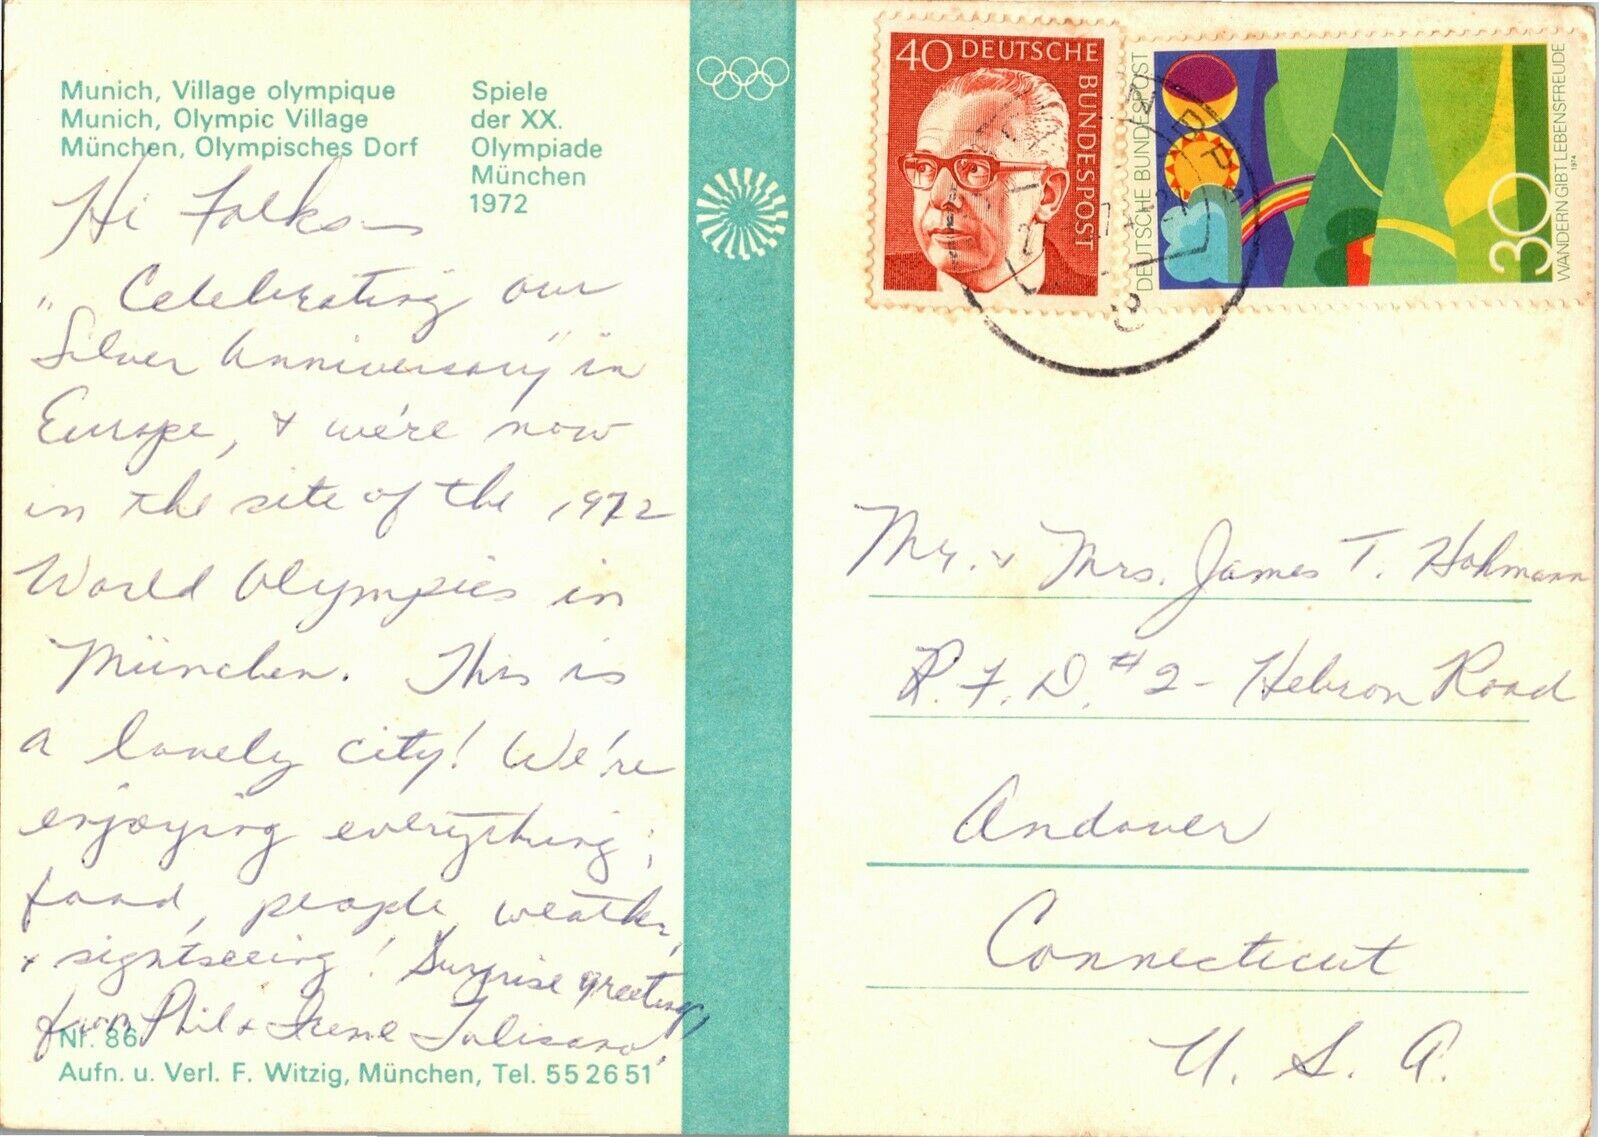 Munich, Village olympique
Munich, Olympic Village
München, Olympisches Dorf
Spiele
der XX.
Olympiade
München
1972
Hi Folks —
"Celebrating our
Silver Anniversary" in
Europe, & we're now
in the site of the 1972
World Olympics in
München. This is
a lovely city! We're
enjoying everything;
food, people, weather,
& sightseeing! Surprise greetings
from Phil & Irene
Nr. 86
Aufn. u. Verl. F. Witzig, München, Tel. 55 26 51
40 DEUTSCHE
BUNDESPOST
DEUTSCHE BUNDESPOST
30
WANDERN GIBT LEBENSFREUDE
1974
Mr. & Mrs. James T. Hohmann
R.F.D. #2 - Hebron Road
Andover
Connecticut
U. S. A.